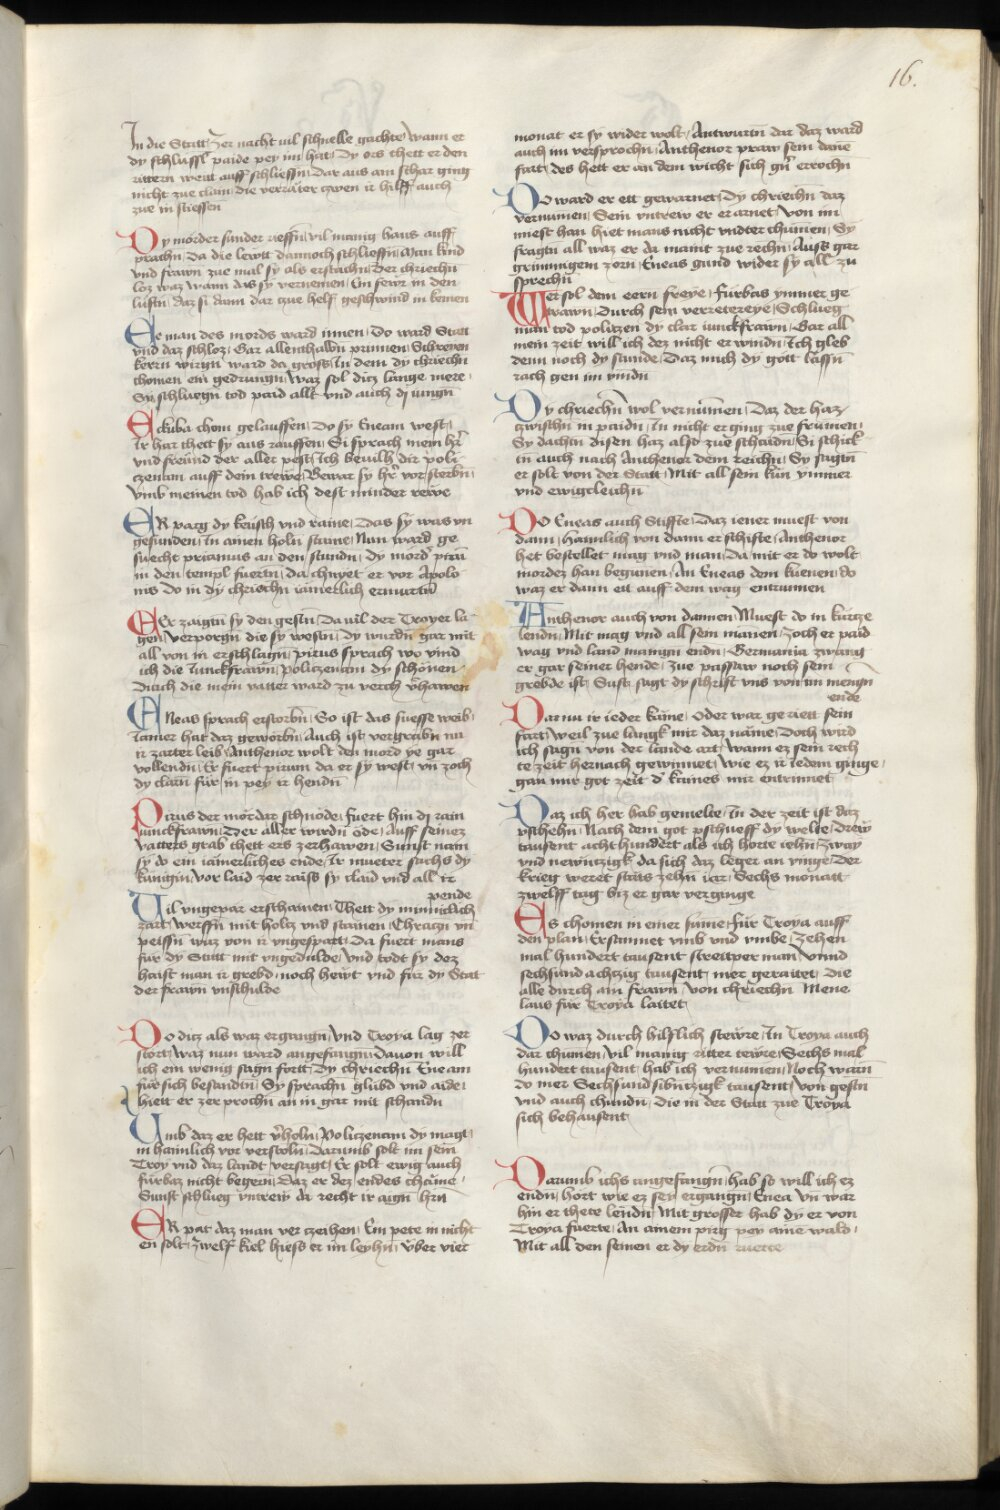 16.
In die Statt zer nacht vil schnelle gachte wann er
dy schlüssl paide pey im hat Dy ors thett er den
rittern weitt auff schliessn Dar aus am schar ging
nicht zue clain die verräter czwen ir hilff auch
zue in stiessen
Dy mörder sunder rieffn vil manig haus auff
prachn Da die lewtt dannoch schlieffn Man kind
vnd frawn zue mal sy als erstachn Der chriechn
loz waz wann das sy vernemen Ein fewr in den
lüftn daz si dann dar zue helf geschwind in kemen
Ee man des mords ward innen Do ward Statt
vnd daz schloz Gar allenthalbn prinnen Schreyen
kerrn wirgn ward da gross In dem dy chriechn
chomen ein gedrungn Waz sol ditz lange mere
Sy schluegn tod paid allt vnd auch dj iungn
Eckuba chom gelauffen Do sy Eneam west
Ir har thett sy aus rauffen Si sprach mein hr
vnd freund der aller pest Ich bevilh dir poli
czenam auff dein trewe Bewar sy hr vor sterbn
Vmb meinen tod hab ich dest minder rewe
ER parg dy keusch vnd raine Das sy was vn
gefunden In ainen holn staine Nun ward ge
suecht priamus an den stundn Dy mordr pran
in den templ fuertn da chnyet er vor Apolo
nis do in dy chriechn iämerlich ermurtn
Er zaigtn sy den gestn Da vil der Troyer la
gen verporgn die sy westn Dy wurdn gar mit
all von in erschlagn pirus sprach wo vind
ich die Iunckfrawn Policzenam dy schonen
Durch die mein vatter ward zu verch vhawen
ENeas sprach erstorbn So ist das suesse weib
Iamer hat daz geworbn Auch ist vergrabn nu
ir zarter leib Anthenor wolt den mord ye gar
vollendn Er fuert pirum da er sy west vn zoch
dy clarn für in pey ir hendn
Pirus der mordar schnöde fuert hin dj rain
iunckfrawn Der aller wirdn öde Auff seinez
vatters grab thett ers zerhawen Sunst nam
sy do ein iämerliches ende Ir mueter sachs dy
künigin vor laid zer raiss sy claid vnd all ir
pende
Vil vngepar erschainen Thett dy minniclich
zart werffn mit holtz vnd stainen Chraczn vn
peissn waz von ir vngespart Da fuert mans
für dy Statt mit vngedulde Vnd todt sy dez
haist man ir grebd noch hewt vnd für dy Stat
der frawn vnschulde
Do ditz als waz ergangn Vnd Troya lag zer
stort Waz nun ward angefangn dauon will
ich ein wenig sagn fortt Dy chriechn Eneam
für sich besandtn Sy sprachn glübd vnd aide
hiett er zer prochn an in gar mit schandn
Vmb daz er hett vholn Policzenam dy magt
in haimlich vor verstoln Darumb solt im sein
Troy vnd daz landt versagt Er solt ewig auch
fürbaz nicht begern Daz er dez endes chäme
Sunst schlueg vntrew da recht ir aign hrn
ER pat daz man ver zeihen Ein pete in nicht
en solt Zwelf kiel hiess er im leyhn vber vier
monat er sy wider wolt Antwurtn dar daz ward
auch im versprochn Anthenor praw sein dane
fart des hett er an dem wicht sich gn errochn
Do ward er ett gewarnet Dy chriechn daz
vernamen Sein vntrew er erarnet Von im
miest han hiet mans nicht vndter chumen Sy
fragtn all waz er da maint zue rechn Auss gar
grimmigem zorn Eneas gund wider sy all zu
sprechn
Wer sol dem eern freye fürbas ymmer ge
trawn Durch sein verretereye Schlueg
man tod polizen dy clar iunckfrawn Gar all
mein zeit will ich dez nicht er windn Ich gleb
denn noch dy stunde Daz mich dy gott lassn
rach gen im vindn
Dy chriechn wol vernumen Daz der haz
zwischn in paidn In nicht er ging zue frumen
Sy dachtn disen haz also zue schaidn Si schick
tn auch nach Anthener dem reichn Sy sagtn
er solt von der Statt Mit all sein kün ymmer
vnd ewigcleichn
DO Eneas auch Stiffte Daz iener muest von
dann Haimlich von dann er schifte Anthenor
het bestellet mag vnd man Da mit er do wolt
mordez han begunen An Eneas dem küenen do
waz er dann eil auff dem wag entrunnen
Anthenor auch von dannen Muest do in kurtze
lendn Mit mag vnd all sein mannen Zoch er paid
wag vnd land maingn endn Germania zwang
er gar seiner hende Zue passaw noch sein
grebde ist Sust sagt dy schrifft vns von im mengn
ende
Dar nu ir ieder käme Oder war geriett sein
fart weil zue langk mir daz näme Doch wird
ich sagn von der lande art wann ez sein rech
te zeit hernach gewinnet Wie ez ir iedem ginge
gan mir got zeit d kaines mir entrinnet
Daz ich her hab gemelte In der zeit ist daz
pschehn Nach dem got pschueff dy welte Drew
tausent acht hundert als ich hortt iehn Zway
vnd newntzigk da sich daz leger an vinge Der
krieg weret stäts zehn iar Sechs monatt
zwelff tag biz er gar verginge
Es chomen in einer sume für Troya auff
den plan Ersamnet vmb vnd vmbe Zehen
mal hundert tausent streittper man Vnnd
sechsundachzig tausent mer geraitet Die
alle durch ain frawn von chriechn Mene
laus für Troya laitet
Do waz durch hilflich stewre In Troya auch
dar chumen vil manig ritter tewre Sechs mal
hundert tausent hab ich vernumen Noch warn
do mer Sechsundsibntzigk tausent von gestn
vnd auch chundn die in der Statt zue Troya
sich behausent
Darumb ichs angefangn hab so will ich ez
endn hort wie ez sey ergangn Enea vn war
hin er thete lendn Mit grosser hab dy er von
Troya fuerte An ainem pirg pey aine wald
Mit all den seinen er dy erdn ruerte